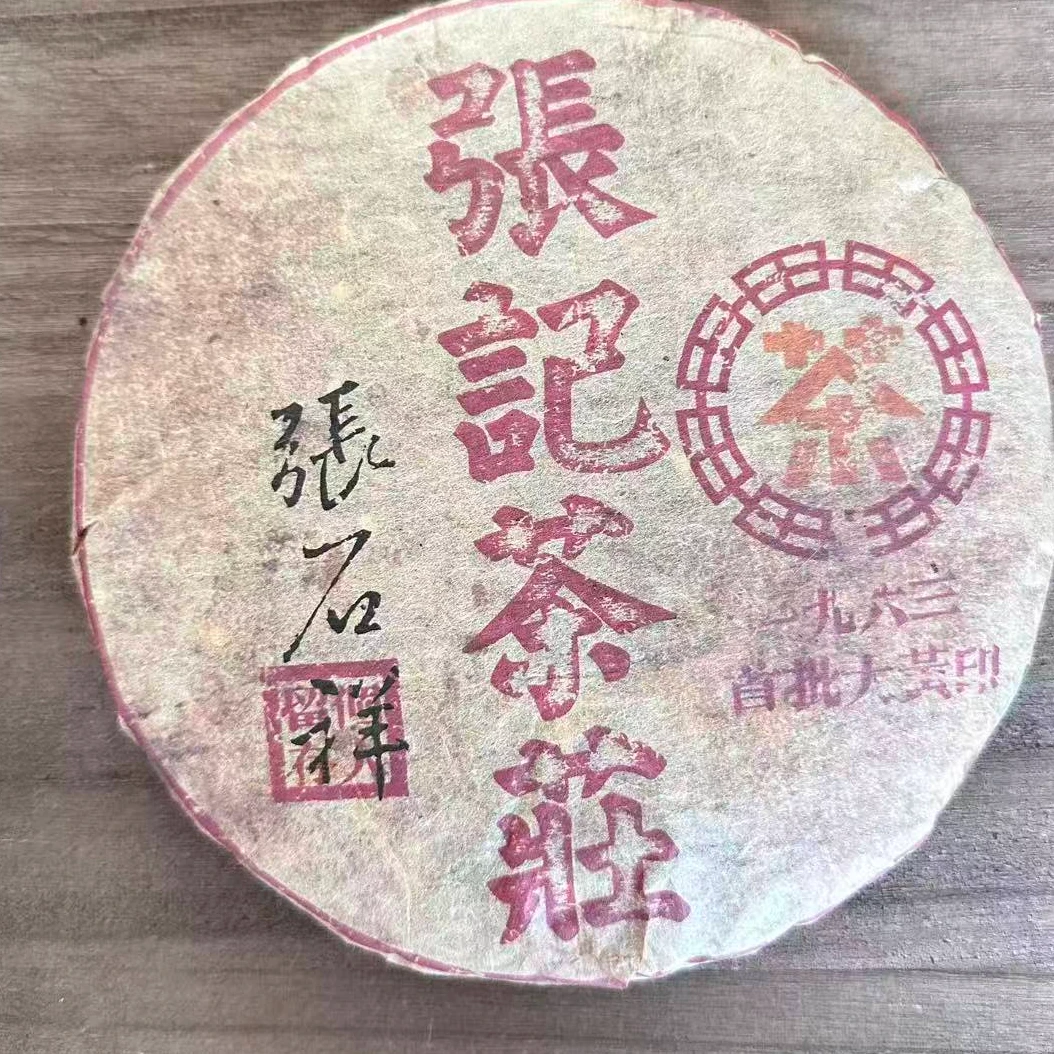 張記茶莊
茶
一九六三
首批大藍印
張石祥